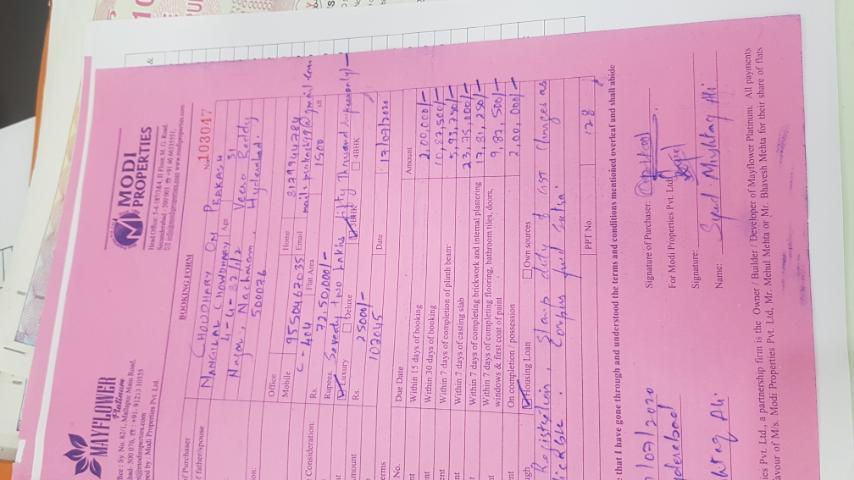 MODI
PROPERTIES
MAYFLOWER
Platinum
BOOKING FORM
No. 103047
of Purchaser CHOWDHARY OM PRAKASH
of father/spouse MANGILAL CHOWDHARY Age 31
4-4-82/1/2 Veera Reddy
Nagar, Nacharam, Hyderabad.
500076
Office Home
Mobile 9550467035 Email
C-404 Flat Area 1500
Consideration: Rs. 72,50,000/-
Rupees Seventy two Lakhs fifty Thousand
Luxury Deluxe 3BHK 4BHK
Rs. 25000/-
102045 Date 13/07/2020
No. Due Date Amount
Within 15 days of booking 2,00,000/-
Within 30 days of booking 10,87,500/-
Within 7 days of completion of plinth beam
Within 7 days of casting slab 23,75,000/-
Within 7 days of completing brickwork and internal plastering 17,81,250/-
Within 7 days of completing flooring, bathroom tiles, doors, windows & first coat of paint 9,87,500/-
On completion / possession 2,00,000/-
Housing Loan Own sources
Registration, Stamp duty & GST Charges as
Corpus fund Extra.
PPT No. 128
e that I have gone through and understood the terms and conditions mentioned overleaf and shall abide
/07/2020
Signature of Purchaser:
For Modi Properties Pvt. Ltd.
Signature:
Name: Syed Mushtaq Ali
ies Pvt. Ltd., a partnership firm is the Owner / Builder / Developer of Mayflower Platinum. All payments
avour of M/s. Modi Properties Pvt. Ltd, Mr. Mehul Mehta or Mr. Bhavesh Mehta for their share of flats